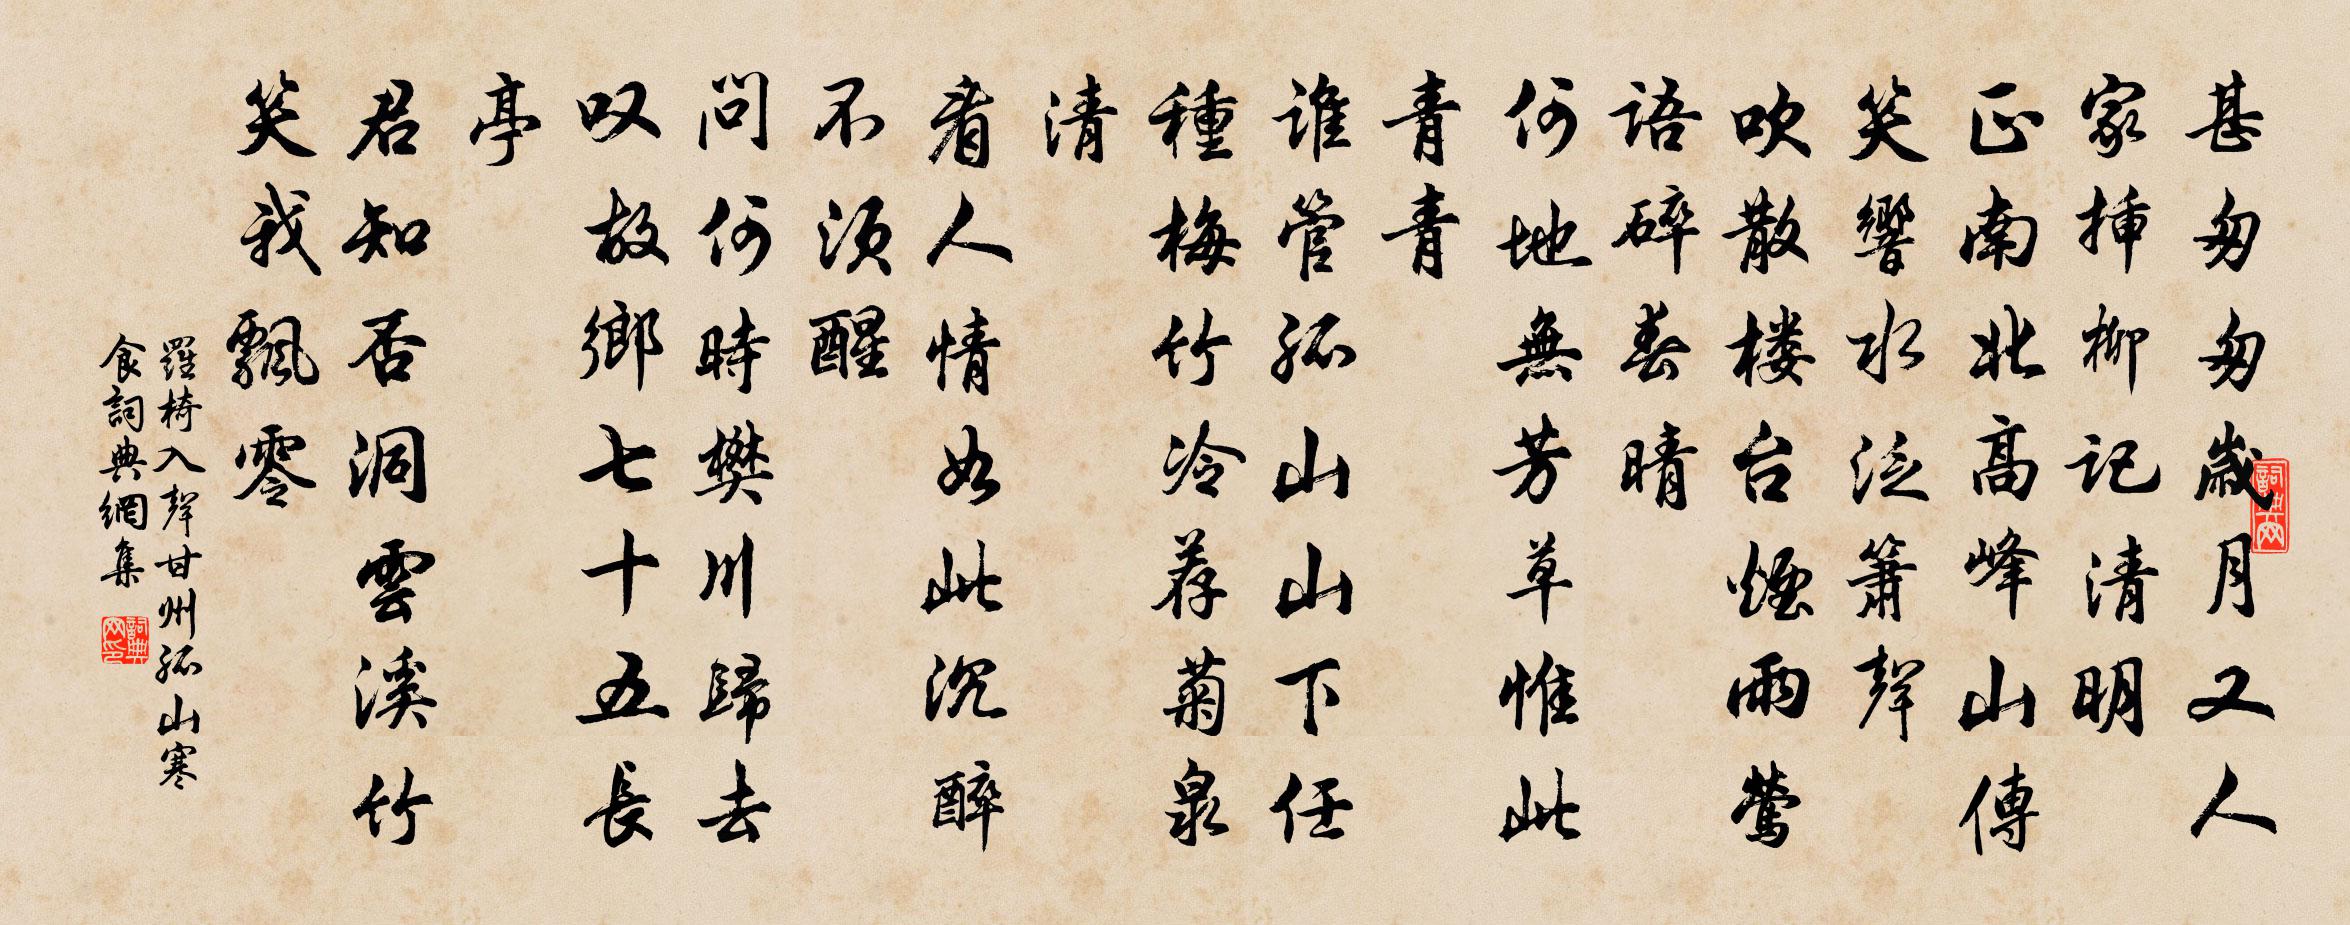 甚匆匆歲月又人
家揷柳記清明
正南北高峰山傳
笑響水泛簫聲
吹散楼台煙雨鶯
語碎春晴
何地無芳草惟此
青青
誰管孤山山下任
種梅竹冷荐菊泉
清
看人情如此沉醉
不須醒
問何時樊川歸去
叹故鄉七十五長
亭
君知否洞雲溪竹
笑我飄零
羅椅八聲甘州孤山寒
食詞典網集
詞典网
詞典网印